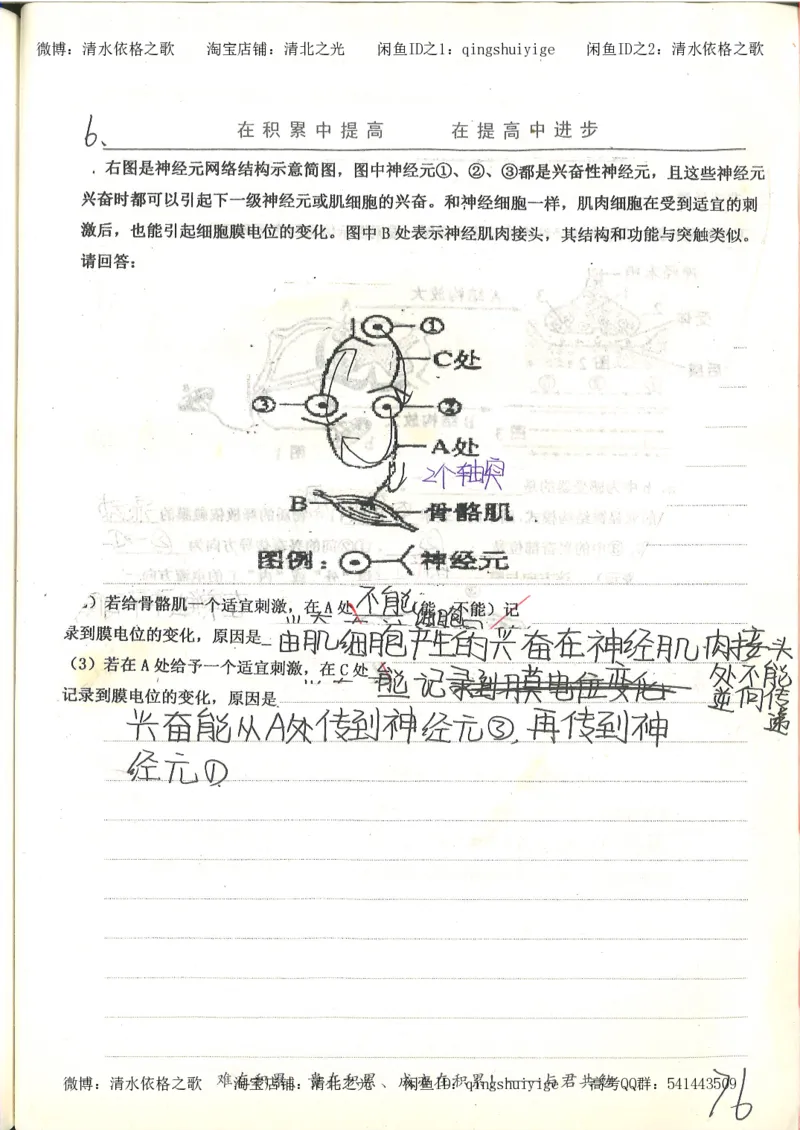 微博：清水依格之歌 淘宝店铺：清北之光 闲鱼ID之1：qingshuiyige 闲鱼ID之2：清水依格之歌
6、
在积累中提高 在提高中进步
．右图是神经元网络结构示意简图，图中神经元①、②、③都是兴奋性神经元，且这些神经元
兴奋时都可以引起下一级神经元或肌细胞的兴奋。和神经细胞一样，肌肉细胞在受到适宜的刺
激后，也能引起细胞膜电位的变化。图中 B 处表示神经肌肉接头，其结构和功能与突触类似。
请回答：
①
C处
③ ②
A处
2个轴突
B 骨骼肌
图例： 神经元
）若给骨骼肌一个适宜刺激，在 A 处 不能（能、不能）记
细胞
录到膜电位的变化，原因是 由肌细胞产生的兴奋在神经肌肉接头
处不能
逆向传
递
（3）若在 A 处给予一个适宜刺激，在 C 处 能 记录到膜电位变化
记录到膜电位的变化，原因是
兴奋能从A处传到神经元③，再传到神
经元①
难在积累、贵在积累、成功在积累！ 与君共勉
微博：清水依格之歌 淘宝店铺：清北之光 闲鱼ID：qingshuiyige 高考QQ群：541443509
76